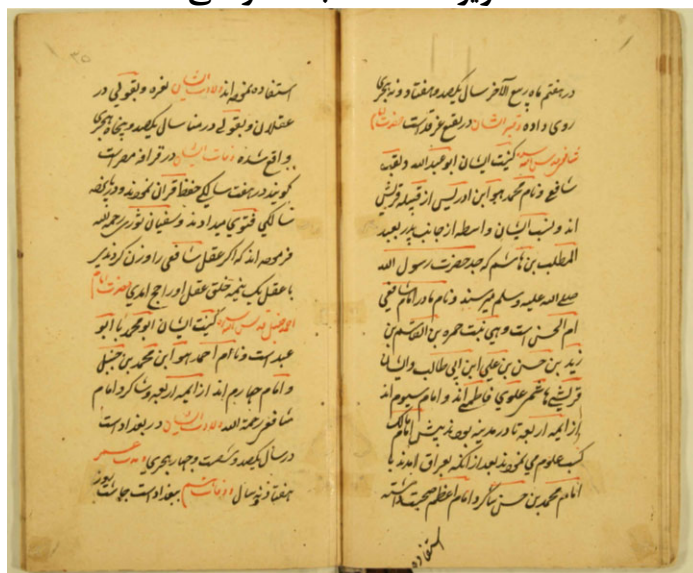 در هفتم ماه ربیع الآخر سال یکصد و هفتاد و نه هجری
روی داده و قبر ایشان در بقیع غرقد است حضرت امام
شافعی قدس سره کنیت ایشان ابو عبدالله و لقب
شافعی و نام محمد هو ابن ادریس از قبیله قریش
اند و نسب ایشان واسطه از جانب پدر بعبد
المطلب بن هاشم که جد حضرت رسول الله
صلی الله علیه و سلم میرسند و نام مادر امام شافعی
ام الحسن است وهی بنت حمزه بن القاسم بن
زید بن حسن بن علی ابن ابی طالب و ایشان
قریشی هاشمی علوی فاطمی اند و امام سیوم اند
از ایمه اربعه تا در مدینه بودند پیش امام مالک
کسب علوم می نمودند بعد از آنکه بعراق آمدند با
امام محمد بن حسن شاگرد امام اعظم صحبت داشته
استفاده
۳۵
استفاده نموده اند ولادت ایشان بغزه و بقولی در
عسقلان و بقولی در منا سال یکصد و پنجاه هجری
واقع شده وفات ایشان در قرافه مصر است
کویند در هفت سالکی حفظ قران نمودند و در پانزده
سالکی فتوی میدادند و سفیان ثوری رحمه الله
فرموده اند که اکر عقل شافعی را وزن کردندی
با عقل یک نیمه خلق عقل او راجح آمدی حضرت امام
احمد حنبل قدس سره کنیت ایشان ابو محمد یا ابو
عبد است و نام احمد هو ابن محمد بن حنبل
و امام چهارم اند از ایمه اربعه و شاکرد امام
شافعی رحمة الله ولادت ایشان در بغداد است
در سال یکصد و شصت و چهار هجری و مدت عمر
هفتاد و نه سال وفات هم ببغداد است